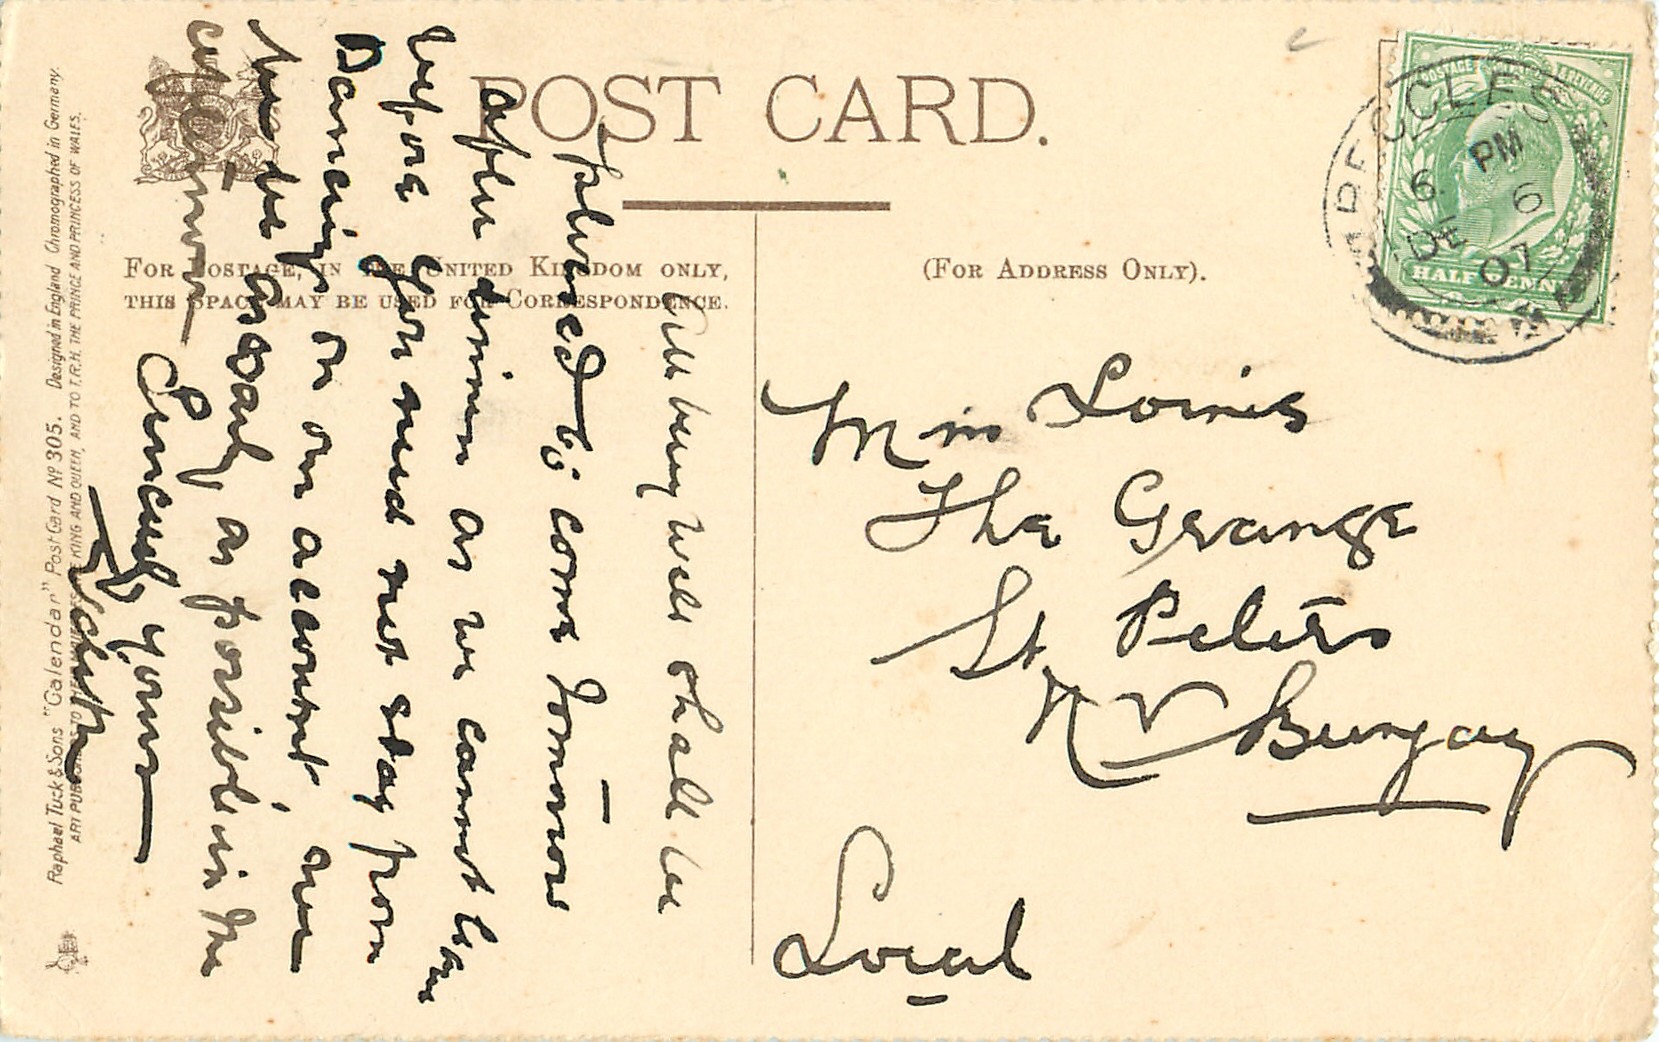 POST CARD.
FOR POSTAGE, IN THE UNITED KINGDOM ONLY,
THIS SPACE MAY BE USED FOR CORRESPONDENCE.
(FOR ADDRESS ONLY).
All being well shall be
pleased to come tomorrow
after dinner as we cannot leave
before You need not stay from
Dancing on our account, we
as possible in the
Sincerely yours
Miss Loinis
The Grange
St Peters
Nr Bungay
Local
BECCLES
6. PM
6 DE
07
POSTAGE & REVENUE
HALFPENNY
Raphael Tuck & Sons "Calendar" Post Card Nº 305. Designed in England Chromographed in Germany.
ART PUBLISHERS TO THEIR MAJESTIES THE KING AND QUEEN, AND TO T.R.H. THE PRINCE AND PRINCESS OF WALES.